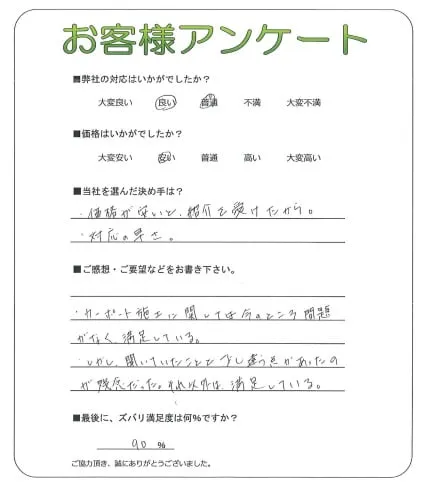 お客様アンケート
■弊社の対応はいかがでしたか？
大変良い 良い 普通 不満 大変不満
■価格はいかがでしたか？
大変安い 安い 普通 高い 大変高い
■当社を選んだ決め手は？
・価格が安いと、紹介を受けたから。
・対応の早さ。
■ご感想・ご要望などをお書き下さい。
・カーポート施工に関しては今のところ問題
がなく、満足している。
・しかし、聞いていたことと少し違う点があったの
が残念だった。それ以外は満足している。
■最後に、ズバリ満足度は何％ですか？
90 %
ご協力頂き、誠にありがとうございました。